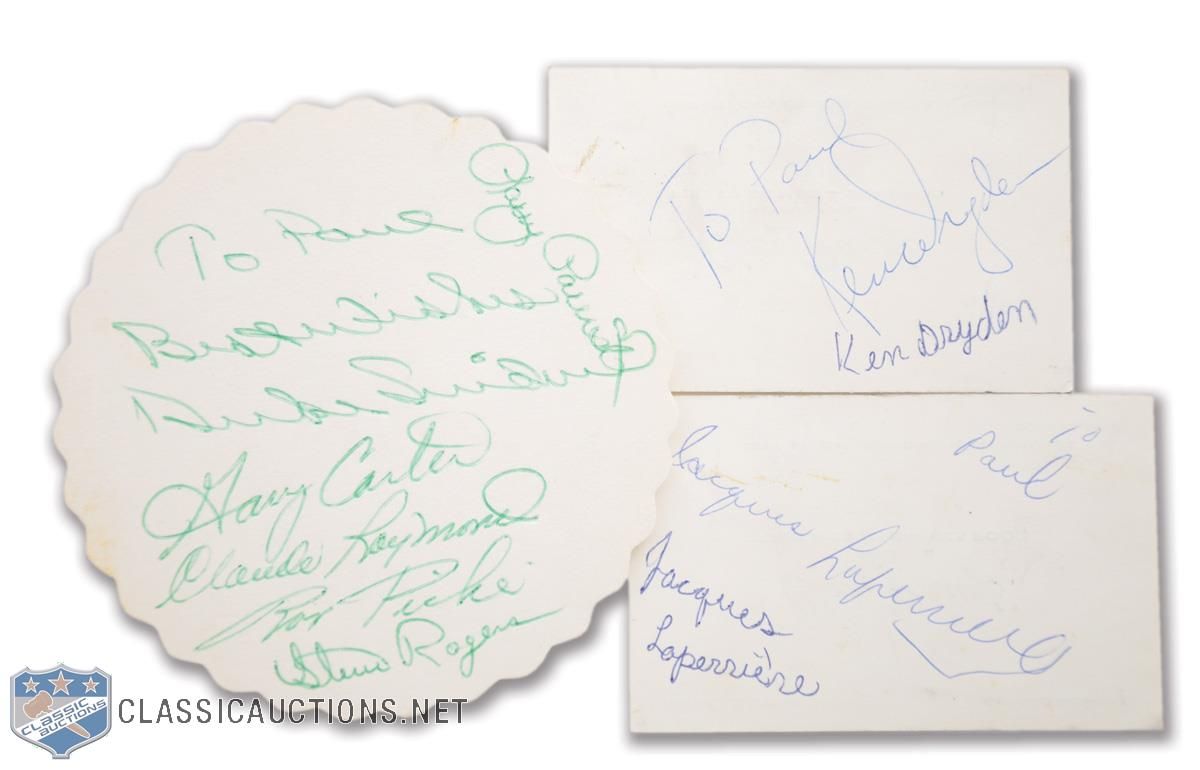 To Paul
Best Wishes
Duke Snider
Gary Carter
Claude Raymond
Ron Piché
Steve Rogers
Larry Parrish
To Paul
Ken Dryden
Ken Dryden
to
Paul
Jacques Laperrière
Jacques
Laperrière
CLASSIC
AUCTIONS
CLASSICAUCTIONS.NET